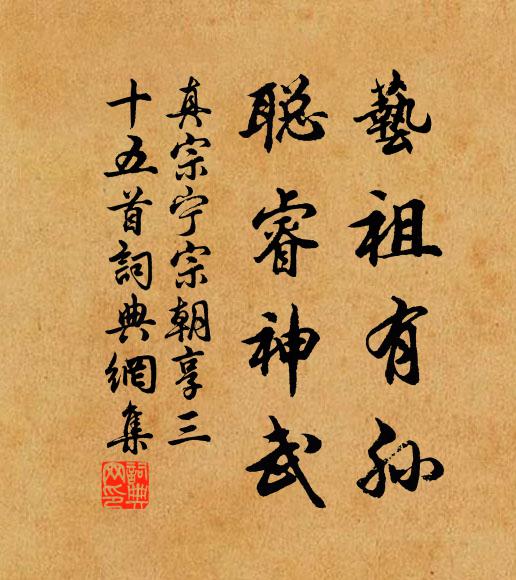 藝祖有孙
聪睿神武
真宗宁宗朝享三
十五首詞典網集
詞典
网印